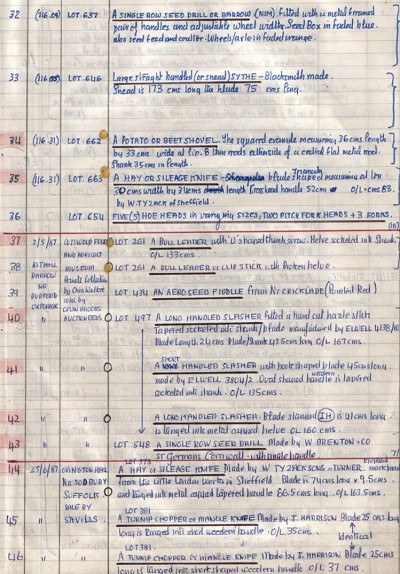 32 (116.09) LOT.637 A SINGLE ROW SEED DRILL OR BARROW (NIM) fitted with a metal framed
pair of handles and adjustable wheel width. Seed Box in faded blue.
also seed feed and coulter. Wheels/axle in faded orange.
33 LOT.646 Large straight handled (or snead) SYTHE - Blacksmith made.
Snead is 173 cms long the blade 75 cms long.
34 (116.31) LOT.662 A POTATO OR BEET SHOVEL. The squared example measuring 36 cms length
by 33 cms wide at lip. 8 thin rods either side of a central flat metal rod.
Shank 35 cms in length.
35 (116.31) LOT.663 A HAY OR SILEAGE KNIFE - Triangular blade shaped measuring at lou
30 cms width by 71 cms length Crosshand handle 52cms O/L=cms 83.
by W. TYZACK of Sheffield.
36 LOT.654 FIVE (5) HOE HEADS in varying sizes, TWO PITCH FORK HEADS + 3 FORKS.
37 2/5/87 COTSWOLD FOLK LOT 261 A BULL LEADER with 'U' shaped thumb screw. Helve socketed into shank
AND AGRICULT O/L 133cms.
38 ASTHALL BARROW MUSEUM LOT 261 A BULL LEADER OF CLIP STICK. with broken helve.
39 NR BURFORD OXFORDSH LOT 434 AN AERO SEED FIDDLE from Nr CRICKLADE (Painted Red)
sold by COLIN
40 " AUCTIONEERS LOT 497 A LONG HANDLED SLASHER fitted a hand cut hazle stick
Tapered socketed into shank/blade manufactured by ELWELL 4138/10
Blade Length 24 cms Blade/shank 43.5 cms long O/L 167 cms.
41 " " A SHORT HANDLED SLASHER with hook shaped blade 45cms long
made by ELWELL 3804/2 Oval shaped handle is tapered
socketed into shank. O/L 135cms.
42 " " A LONG HANDLED SLASHER. Blade stamped IH is 41 cms long
is langed into metal aspued helve OL 160 cms.
43 " " LOT 548 A SINGLE ROW SEED DRILL Made by W BRENTON + CO
St Germans, Cornwall. with single handle.
44 25/6/87 LOT 373 A HAY or SILEAGE KNIFE Made by W TYZACK SONS + TURNER.
NR SUDBURY from the Little London Works in Sheffield Blade is 74cms long x 9.5 cms.
SUFFOLK and langed into metal aspued tapered handle 66.5 cms long. O/L 163.5cms.
SALE BY
45 " LOT 381 A TURNIP CHOPPER or MANGLE KNIFE Made by J. HARRISON Blade 25 cms long
long is langed into shed wooden handle. O/L 35cms.
Identical
46 " " LOT 381. A TURNIP CHOPPER or MANGLE KNIFE Made by J. HARRISON Blade 25cms
long is langed into short shaped wooden handle. O/L 37 cms.